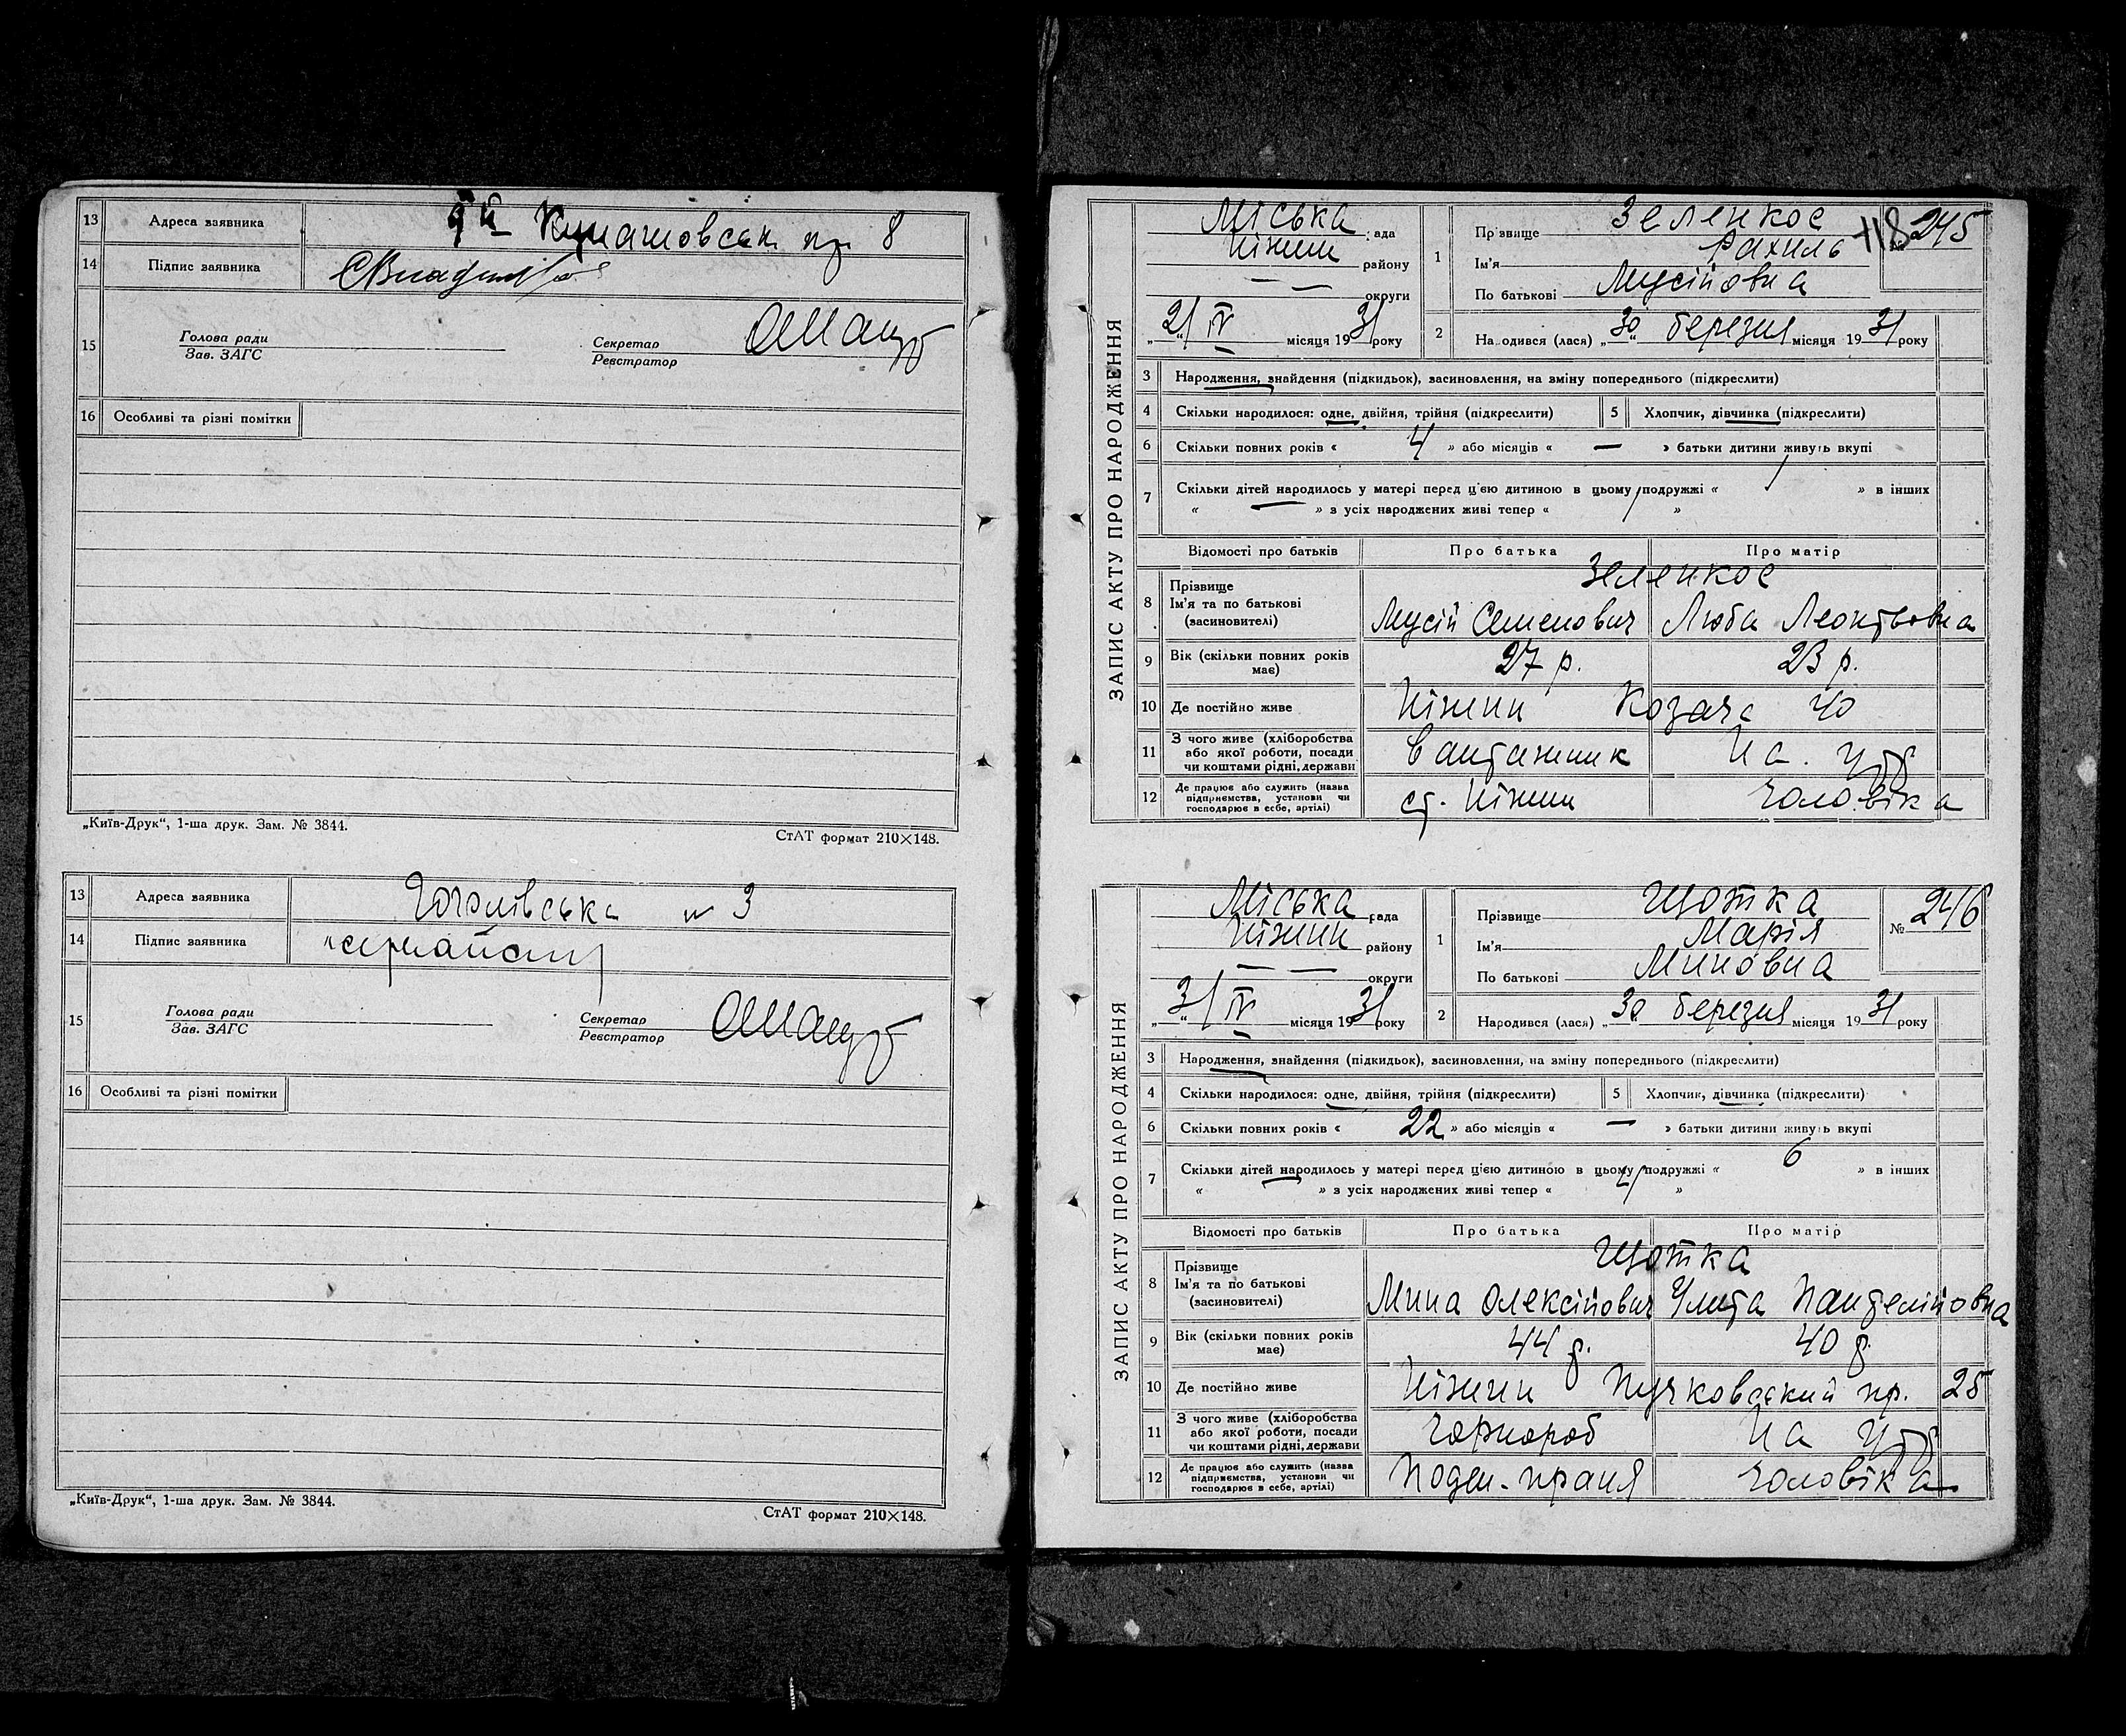 13 Адреса заявника Кунашовськ. пр. 8
14 Підпис заявника
15 Голова ради
Зав. ЗАГС
Секретар
Реєстратор
16 Особливі та різні помітки
„Київ-Друк“, 1-ша друк. Зам. № 3844.
СтАТ формат 210×148.
13 Адреса заявника Гоголівська № 3
14 Підпис заявника
15 Голова ради
Зав. ЗАГС
Секретар
Реєстратор
16 Особливі та різні помітки
„Київ-Друк“, 1-ша друк. Зам. № 3844.
СтАТ формат 210×148.
ЗАПИС АКТУ ПРО НАРОДЖЕННЯ
Міська рада
Ніжин району
— — округи
„2“ IV місяця 1931 року
1 Прізвище Зеленкос
Ім'я Рахиль
По батькові Мусійовна
118 № 245
2 Народився (лася) „30“ березня місяця 1931 року
3 Народження, знайдення (підкидьок), засиновлення, на зміну попереднього (підкреслити)
4 Скільки народилося: одне, двійня, трійня (підкреслити) 5 Хлопчик, дівчинка (підкреслити)
6 Скільки повних років « 4 » або місяців « — » батьки дитини живуть вкупі
7 Скільки дітей народилось у матері перед цією дитиною в цьому подружжі « / » в інших
« — » з усіх народжених живі тепер « / »
Відомості про батьків Про батька Про матір
8 Прізвище Зеленкос
Ім'я та по батькові Мусій Семенович Люба Леонтьовна
(засиновителі)
9 Вік (скільки повних років має) 27 р. 23 р.
10 Де постійно живе Ніжин Козача 40
11 З чого живе (хліборобства або якої роботи, посади чи коштами рідні, держави вантажник На утр
12 Де працює або служить (назва підприємства, установи чи господарює в себе, артілі) ст. Ніжин чоловіка
ЗАПИС АКТУ ПРО НАРОДЖЕННЯ
Міська рада
Ніжин району
— — округи
„3“ IV місяця 1931 року
1 Прізвище Щотка
Ім'я Марія
По батькові Миновна
№ 246
2 Народився (лася) „30“ березня місяця 1931 року
3 Народження, знайдення (підкидьок), засиновлення, на зміну попереднього (підкреслити)
4 Скільки народилося: одне, двійня, трійня (підкреслити) 5 Хлопчик, дівчинка (підкреслити)
6 Скільки повних років « 22 » або місяців « — » батьки дитини живуть вкупі
7 Скільки дітей народилось у матері перед цією дитиною в цьому подружжі « 6 » в інших
« — » з усіх народжених живі тепер « 4 »
Відомості про батьків Про батька Про матір
8 Прізвище Щотка
Ім'я та по батькові Мина Олексійович Улита Пантелійовна
(засиновителі)
9 Вік (скільки повних років має) 44 р. 40 р.
10 Де постійно живе Ніжин Пучковський пр. 25
11 З чого живе (хліборобства або якої роботи, посади чи коштами рідні, держави чорнороб На утр
12 Де працює або служить (назва підприємства, установи чи господарює в себе, артілі) Поден. праця чоловіка